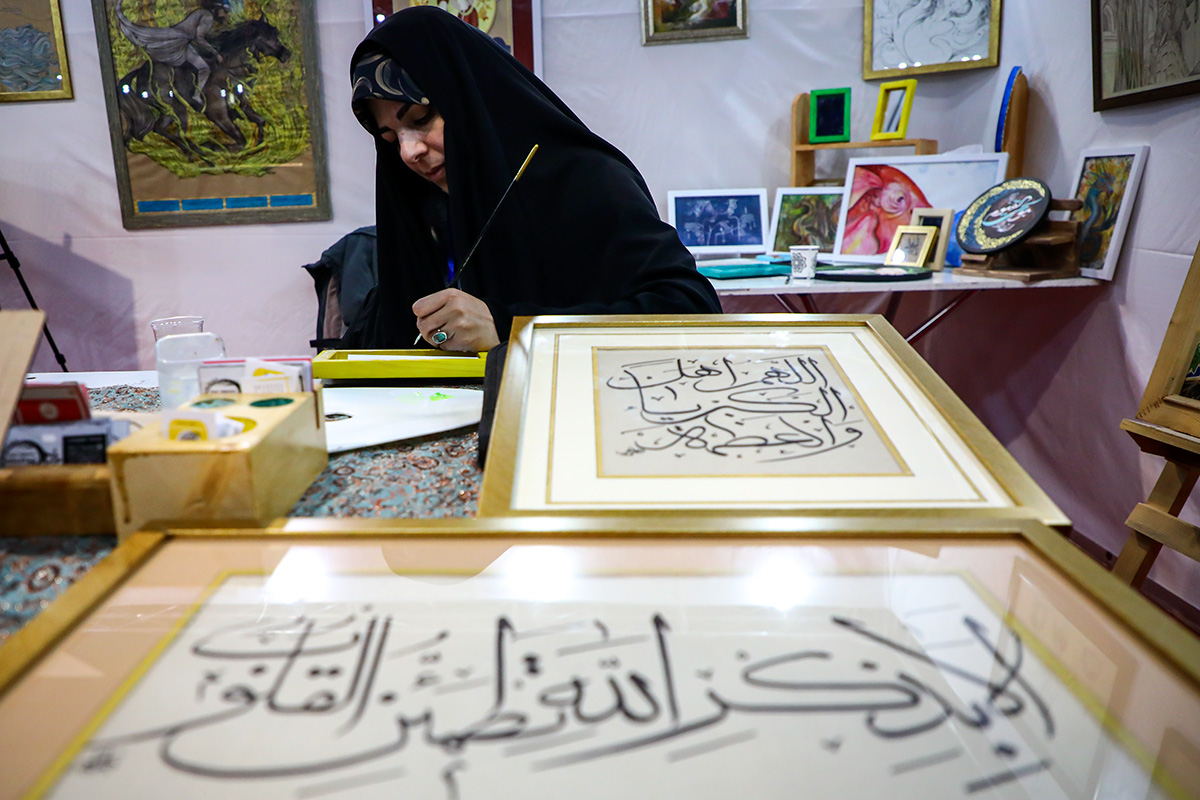 اللهم اهل
الکبریا
والعظمة
الا بذکر الله تطمئن القلوب